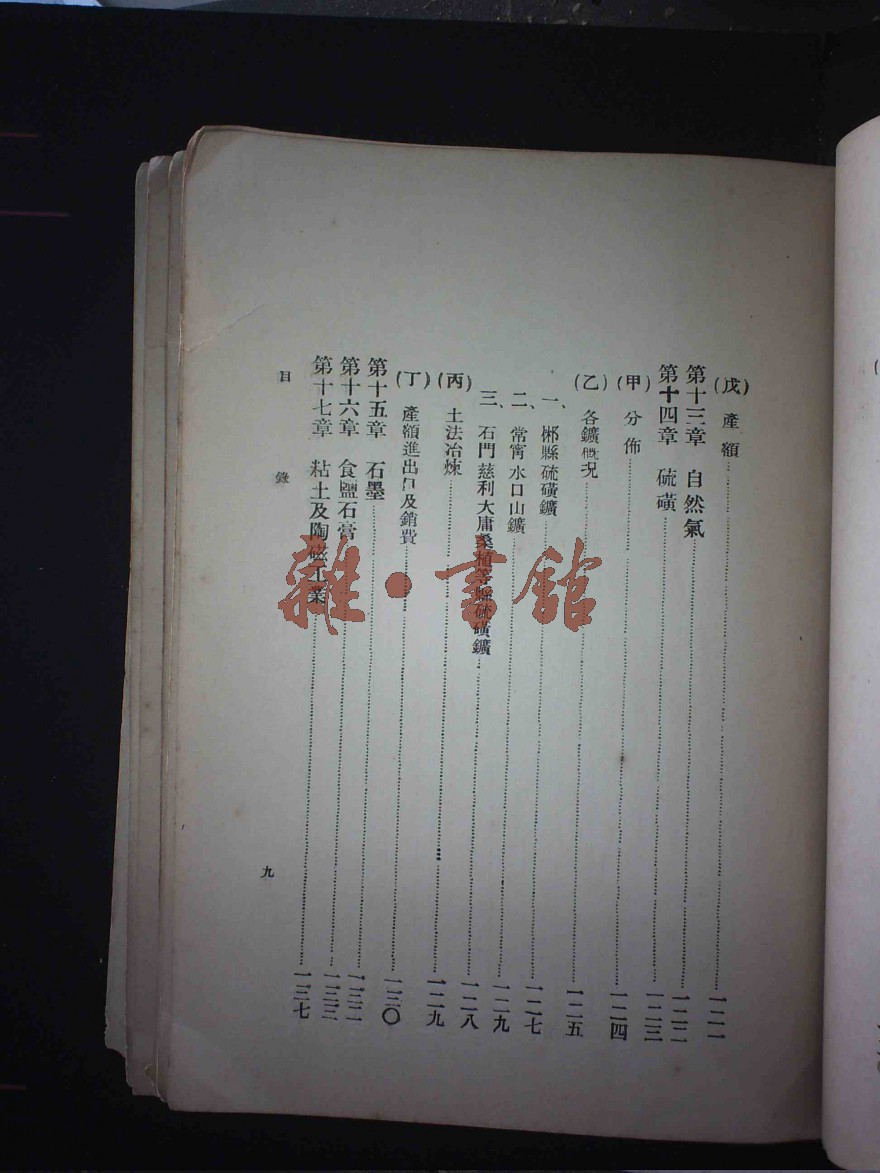 (戊) 產額……一二一
第十三章 自然氣……一二二
第十四章 硫磺……一二三
(甲) 分佈……一二四
(乙) 各鑛概况……一二五
一、郴縣硫磺鑛……一二七
二、常甯水口山鑛……一二九
三、石門慈利大庸桑植等縣硫磺鑛……一二八
(丙) 土法冶煉……一二九
(丁) 產額進出口及銷費……一三〇
第十五章 石墨……一三二
第十六章 食鹽石膏……一三三
第十七章 粘土及陶磁工業……一三七
目錄
九
雜·書館